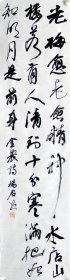 老梅愈老愈精神水店山
楼若有人清到十分寒满把始
知明月是前身金农诗